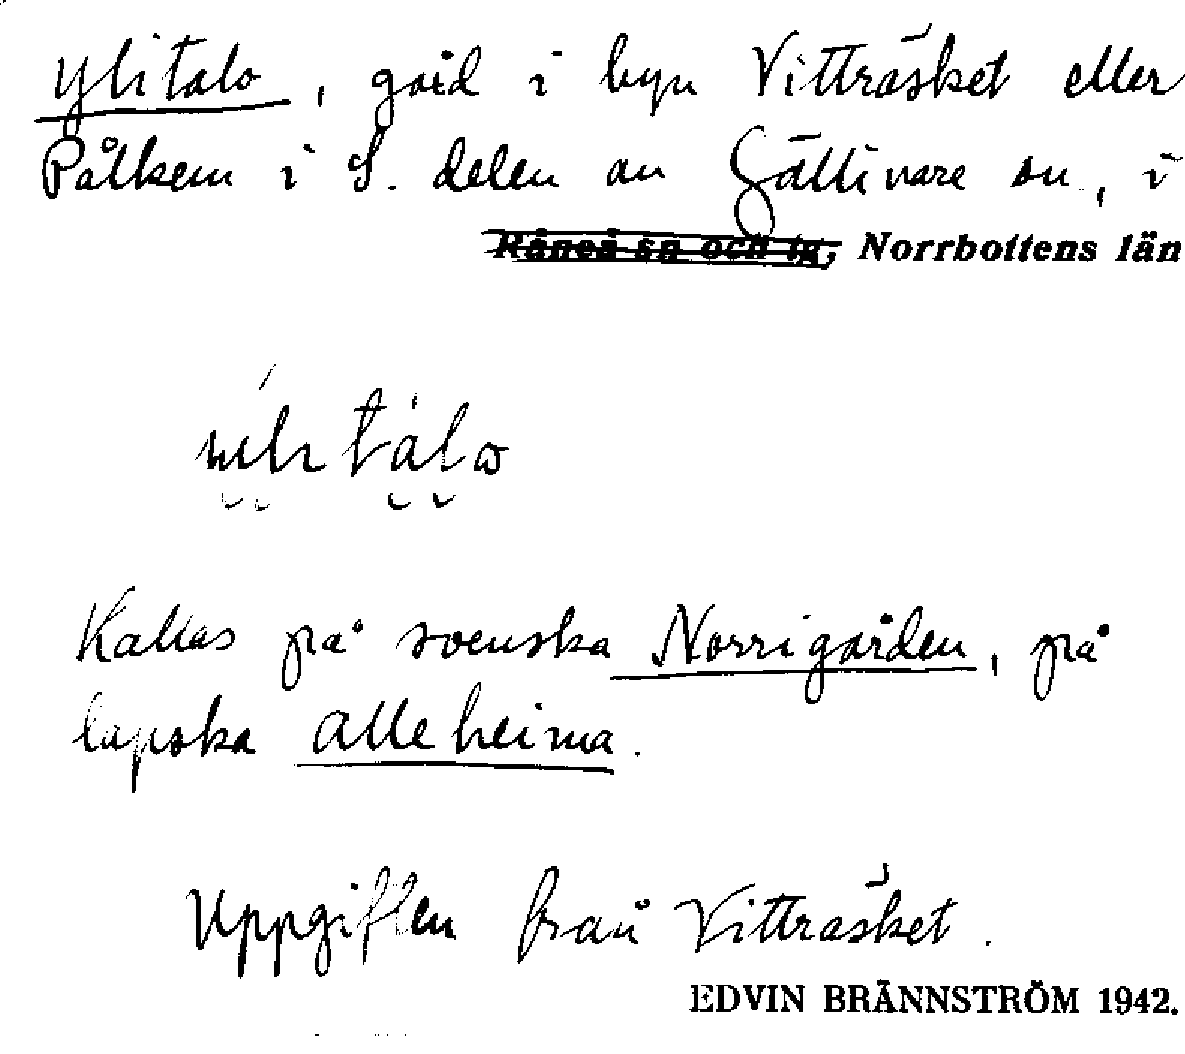 Ylitalo, gård i byn Vitträsket eller
Pålkem i S. delen av Gällivare sn., i
Råneå sn och tg, Norrbottens län
Kallas på svenska Norrigården, på
lapska alleheima.
Uppgiften från Vitträsket.
EDVIN BRÄNNSTRÖM 1942.